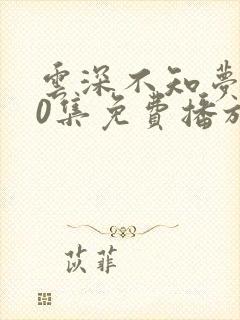 雲深不知夢
0集免費播放
苡菲